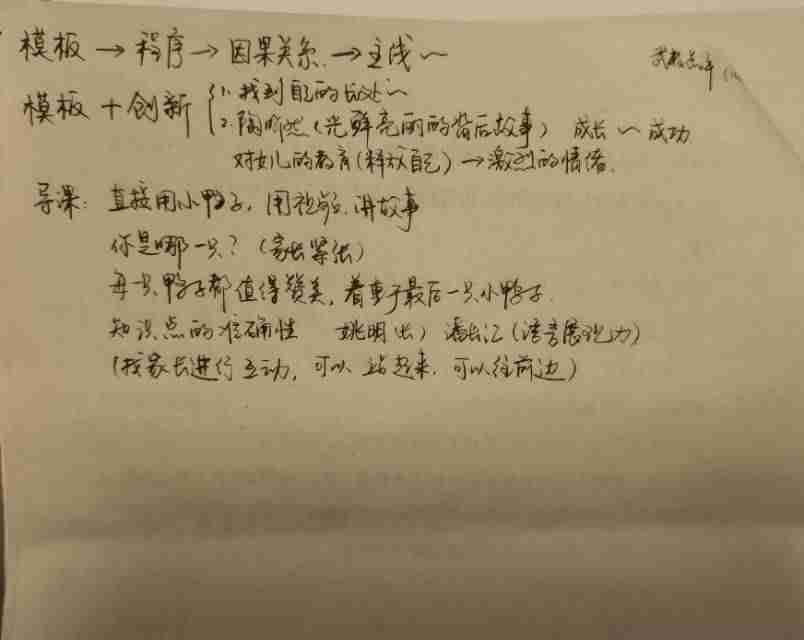 模板 → 程序 → 因果关系. → 主线~
模板 + 创新 { 1. 找到自己的长处~
2. 陶昕然(光鲜亮丽的背后故事) 成长 ~ 成功
对女儿的教育(释放自己) → 激烈的情绪.
导课: 直接用小鸭子, 用视频. 讲故事
你是哪一只? (家长紧张)
每一只鸭子都值得赞美, 着重于最后一只小鸭子.
知识点的准确性 姚明(长) 潘长江(语言展现力)
(找家长进行互动, 可以站起来, 可以往前边)